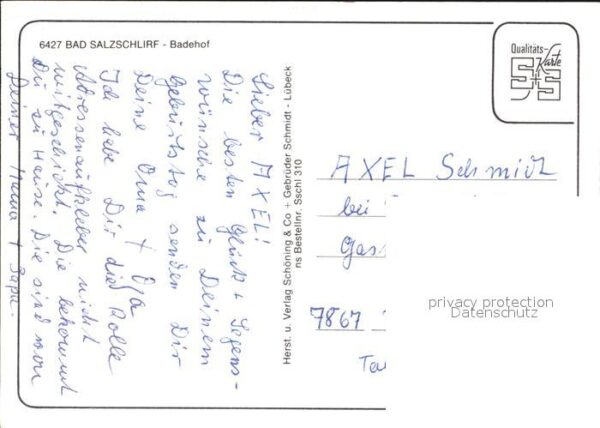 6427 BAD SALZSCHLIRF - Badehof
Lieber AXEL!
Die besten Glück + Segens-
wünsche zu Deinem
Geburtstag senden Dir
Deine Oma + Opa
Ich habe Dir die Rolle
Adressenaufkleber nicht
mitgeschickt. Die bekommst
Du zu Hause. Die sind von
Deiner Mama + Papa.
Herst. u. Verlag Schöning & Co + Gebrüder Schmidt - Lübeck
ns Bestellnr. Sschl 310
Qualitäts-
Karte
S+S
AXEL Schmidt
bei
Gas
7867
privacy protection
Datenschutz